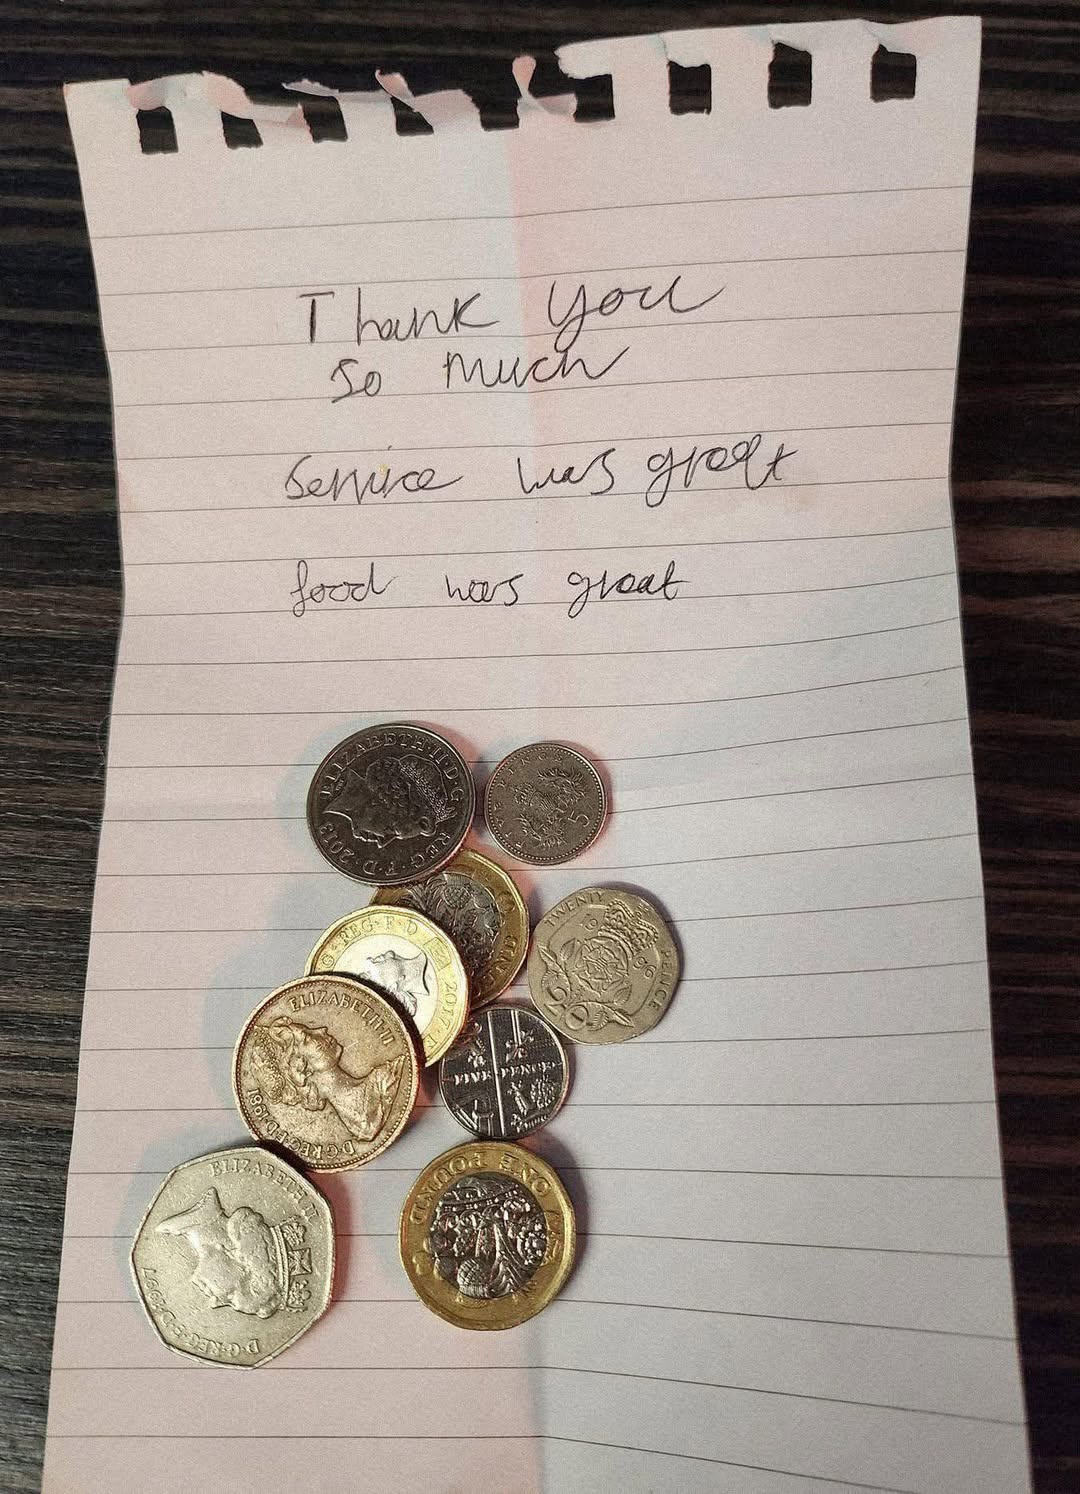 Thank you
so much
service was great
food was great
ELIZABETH·II·D·G
REG·F·D·2013
5
G·REG·F·D·
2017
TWENTY PENCE
20
ELIZABETH·II
D·G·REG·F·D·1981
FIVE PENCE
ELIZABETH II
D·G·REG·F·D·1997
ONE POUND